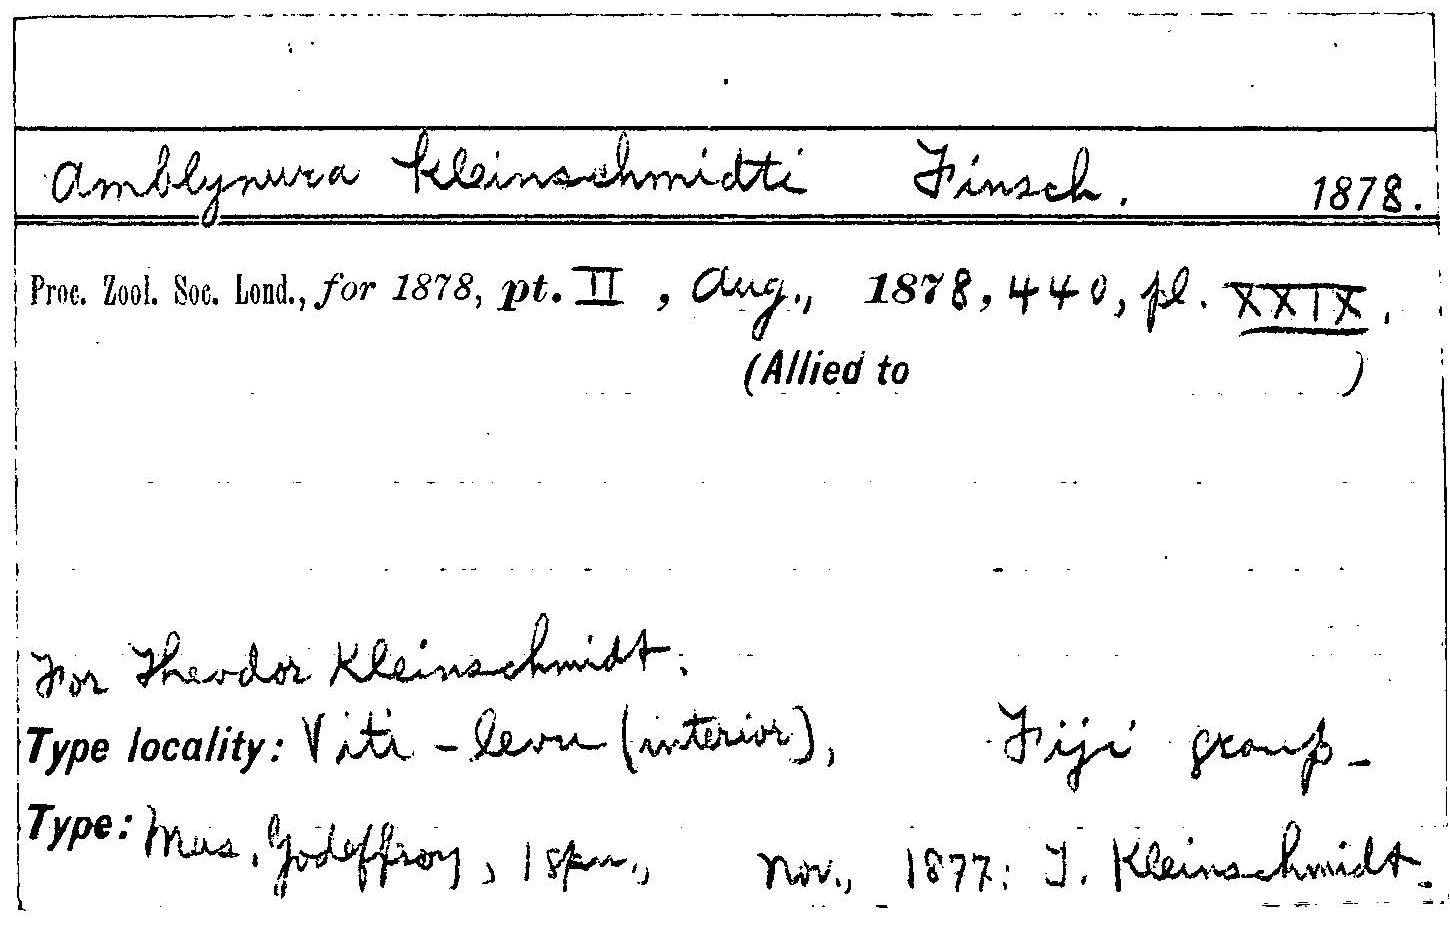 Amblynura kleinschmidti Finsch. 1878.
Proc. Zool. Soc. Lond., for 1878, pt. II, Aug., 1878, 440, pl. XXIX.
(Allied to )
For Theodor Kleinschmidt.
Type locality: Viti-levu (interior), Fiji group-
Type: Mus. Godeffroy, 1 spm., Nov., 1877: T. Kleinschmidt.